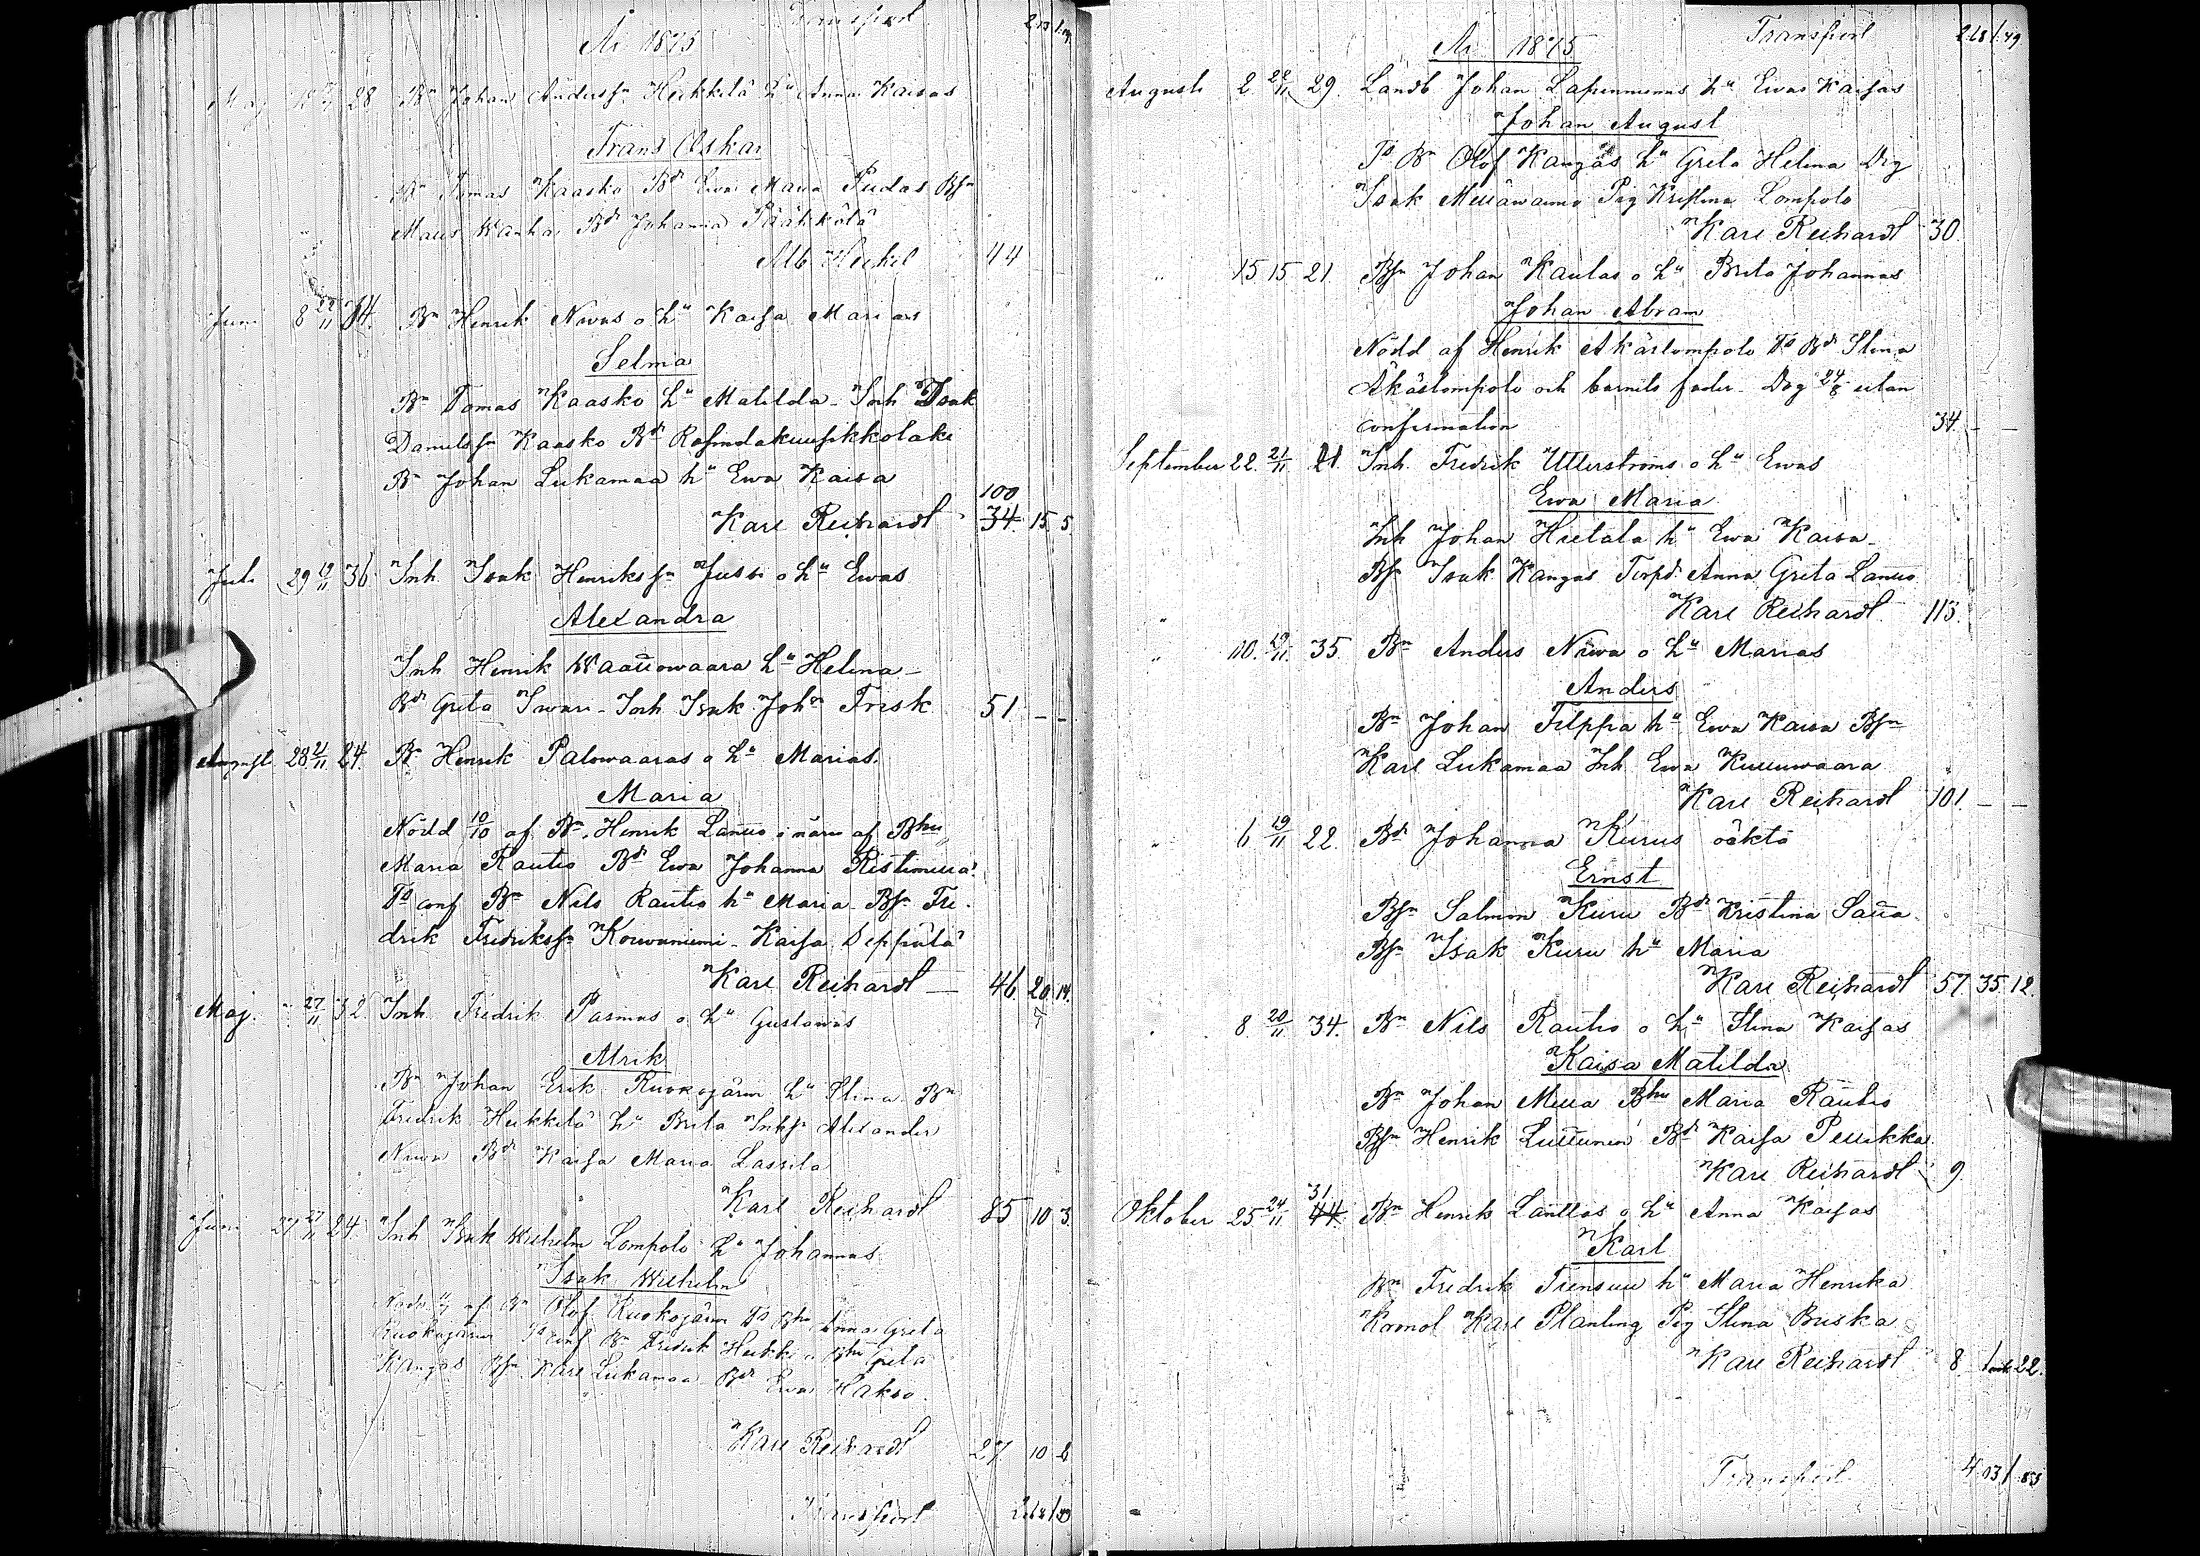 År 1875 Transport
Maj 28 Bn Johan Anderssn Heikkilä hu Anna Kaisas
Frans Oskar
Bn Tomas Kaasko Bdr Ewa Maria Pudas Bsn
Matts Wanha Bdr Johanna Päätköla
Alb Heikel 44
Juni 8 22/11 34. Bn Henrik Niwas o hu Kaisa Marias
Selma
Bn Tomas Kaasko hu Matilda - Inh Isak
Danielssn Kaasko Bdr Rosinda
Bn Johan Lukamaa hu Ewa Kaisa
100
Karl Reihardt 34. 15. 5.
Juli 29 19/11 36 Inh. Isak Henrikssn Juse o hu Ewas
Alexandra
Inh Henrik Waattowaara hu Helena -
Bdr Greta Iwari - Inh Isak Johsn Frisk 51 - -
August 28 21/11 24. Bn Henrik Palowaaras o hu Marias.
Maria
Nödd 10/10 af Bn. Henrik Lantto i närv af Bhu
Maria Rautio Bdr Ewa Johanna Ristimella.
Ts conf Bn Nils Rautio hu Maria - Bsn Fre-
drik Fredrikssn Kouwaniemi - Kaisa Seppälä
Karl Reihardt - 46 20. 14.
Maj. 27/11 32. Inh Fredrik Pasmas o hu Gustawas
Alrik
Bn Johan Erik Ruokojärwi hu Stina Bn
Fredrik Heikkilä hu Brita Inhsn Alexander
Niwa Bdr Kaisa Maria Lassila
Karl Reihardt 85 10 3.
Juni 27 27/11 24. Inh Isak Wilhelm Lompolo hu Johannas
Isak Wilhelm
Nödd af Bn Olof Ruokojärwi Ts Bhu Anna Greta
Ruokojärwi Ts conf Bn Fredrik Heikki o Bhu Greta
Kangas Bsn Karl Lukamaa Bdr Ewa Hakso.
Karl Reihardt 27. 10 8
Transport
År 1875 Transport
Augusti 2 22/11 29. Landb Johan Lapinniemis hu Ewas Kaisas
Johan August
Ts Bn Olof Kangas hu Greta Helena Drg
Isak Pig Kristina Lompolo
Karl Reihardt 30.
" 15 15 21. Bsn Johan Kaulas o hu Brita Johannas
Johan Abram
Nödd af Henrik Äkäslompolo Ts Bdr Stina
Äkäslompolo och barnets fader. Dog 24/8 utan
confirmation 34. - -
September 22. 21/11 21. Inh. Fredrik Ullerströms o hu Ewas
Ewa Maria
Inh Johan Hietala hu Ewa Kaisa -
Bsn Isak Kangas Torpd. Anna Greta Lantto
" Karl Reihardt 113.
" 10. 19/11 35. Bn Anders Niwa o hu Marias
Anders
Bn Johan Filppa hu Ewa Kaisa Bsn
Karl Lukamaa Inh Ewa
Karl Reihardt 101. - -
" 6 19/11 22. Bdr Johanna Kurus oäkta
Ernst
Bsn Salmon Kuru Bdr Kristina Satta.
Bsn Isak Kuru hu Maria
Karl Reihardt 57. 35. 12.
8. 20/11 34. Bn Nils Rautio o hu Stina Kaisas
Kaisa Matilda
Bn Johan Mella Bhu Maria Rautio
Bsn Henrik Luttunen Bdr Kaisa Pellikka
Karl Reihardt 9.
31
Oktober 25 24/11 44. Bn Henrik Lanttos o hu Anna Kaisas
Karl
Bn Fredrik Tiensuu hu Maria Henrika
Kronol Karl Planting Pig Stina Briska
Karl Reihardt 8. 22.
Transport